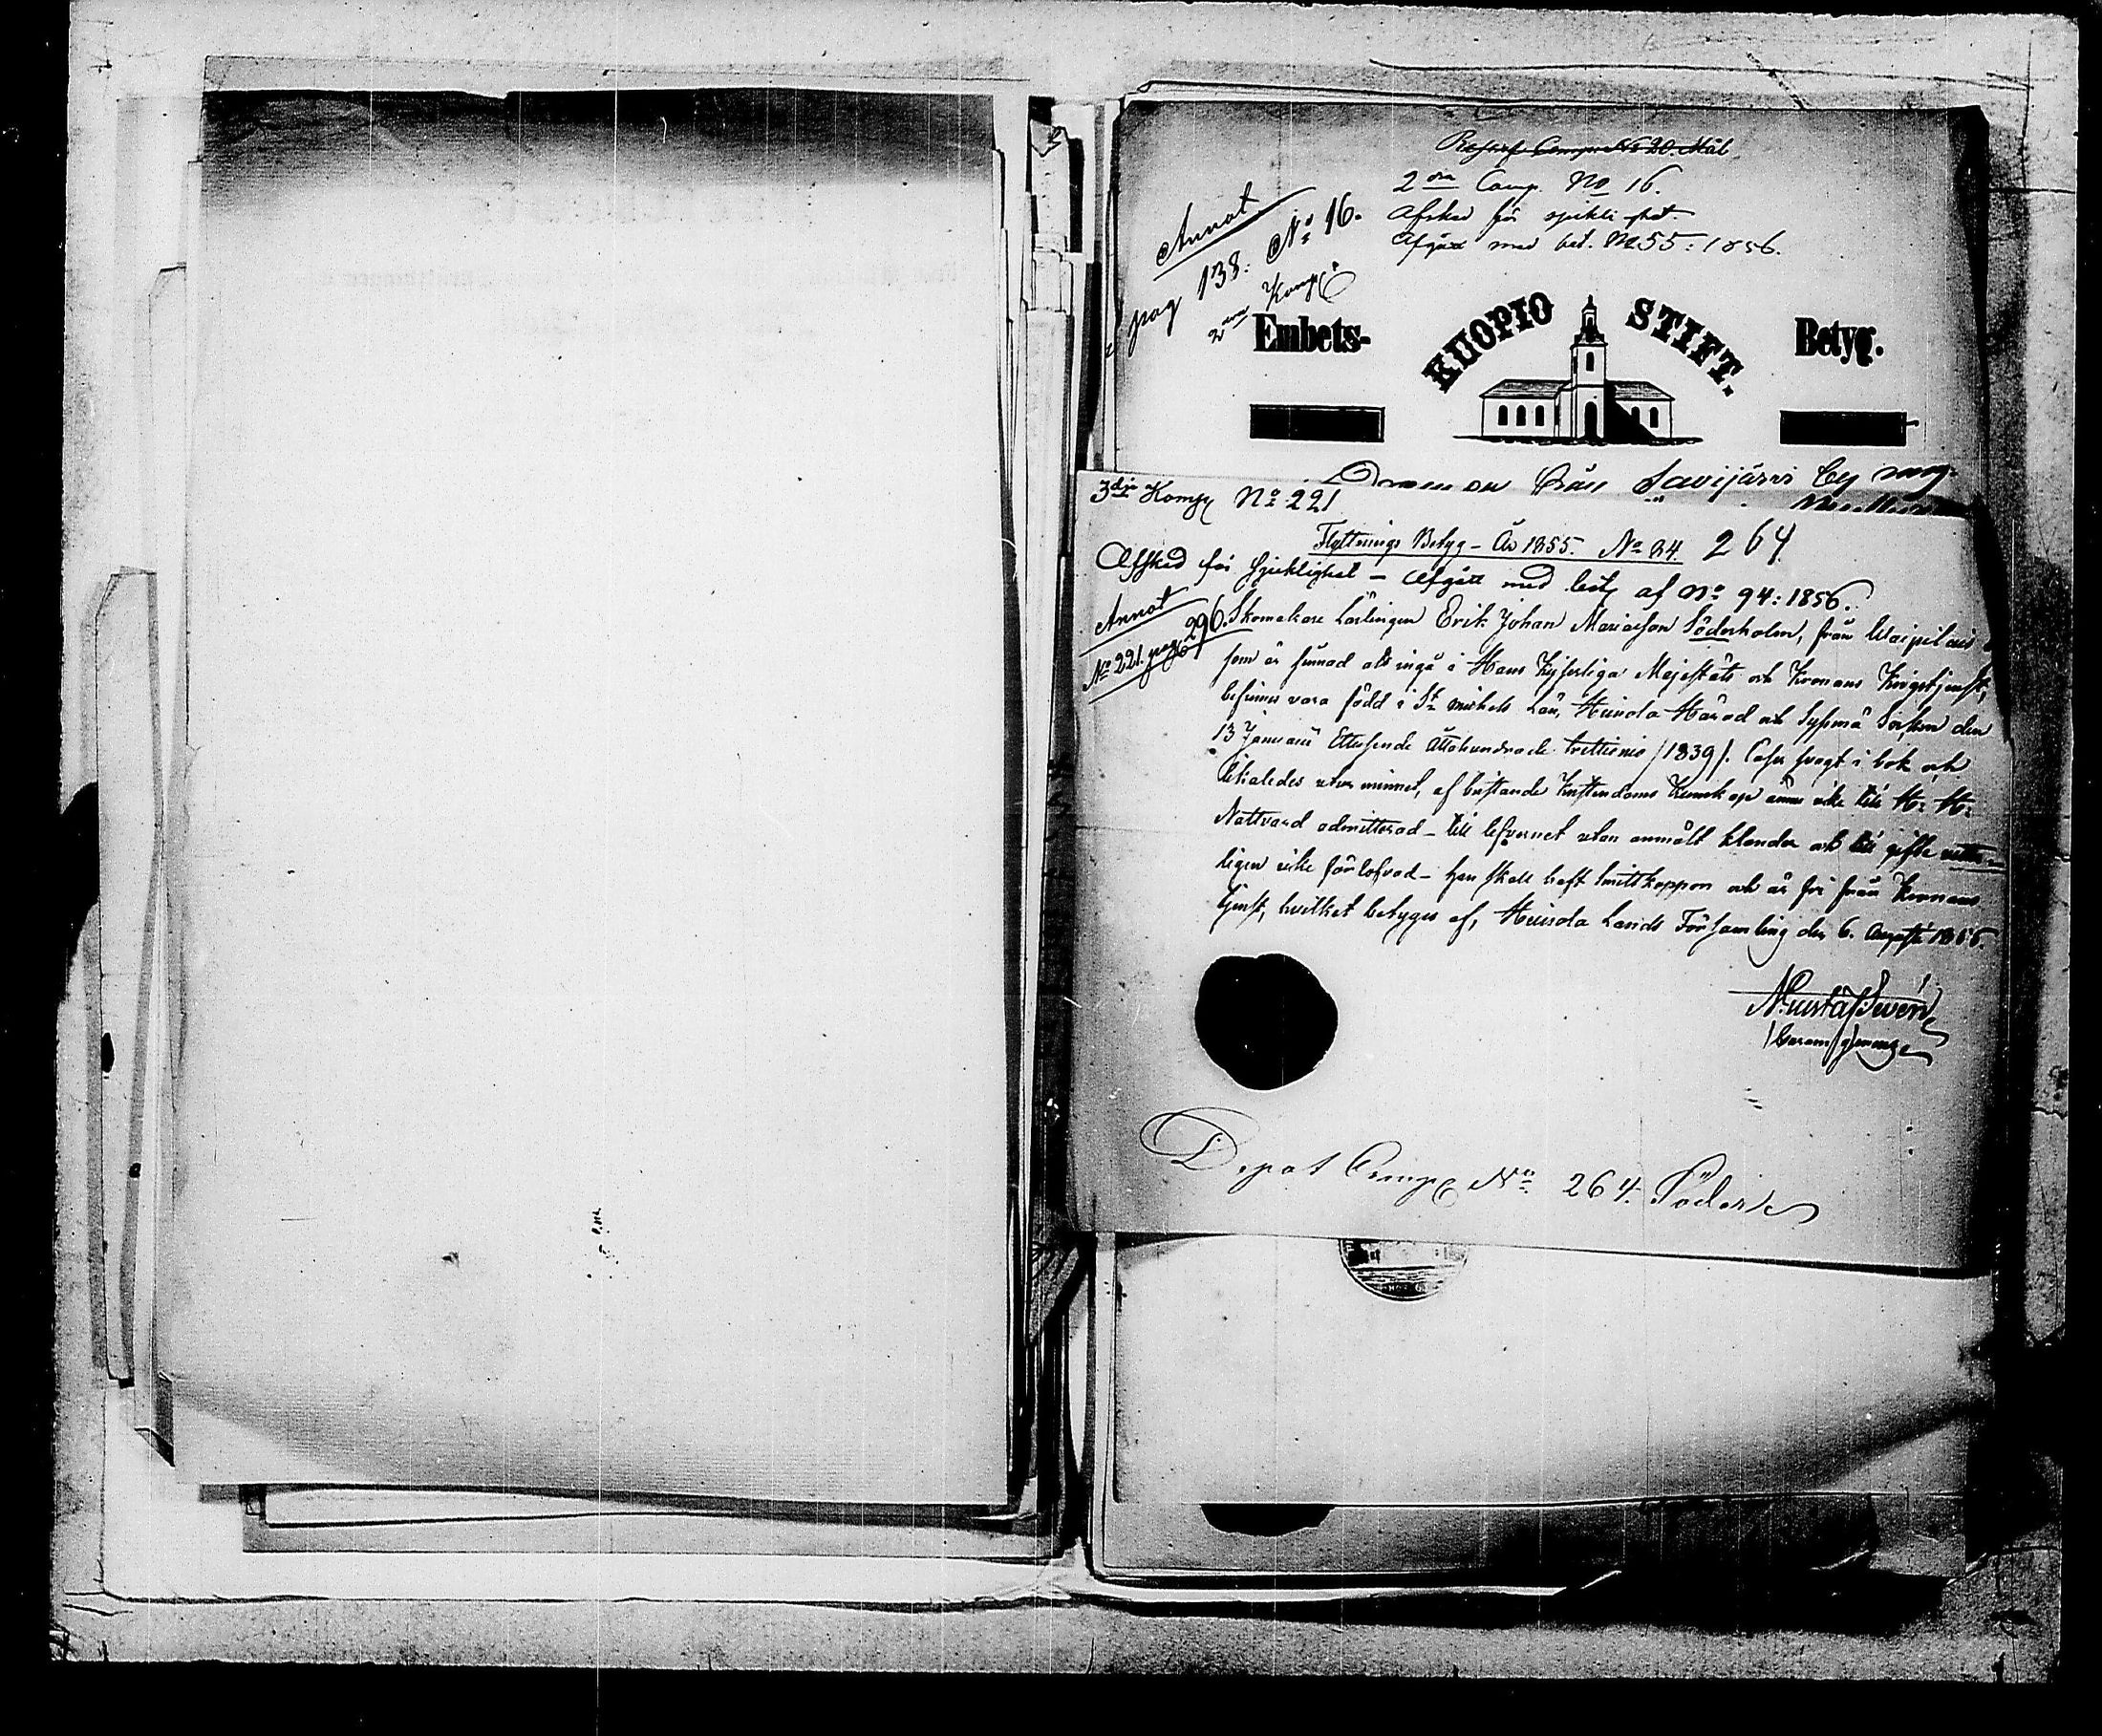 Reserf Comp. No 20. Mål
2dra Comp. No 16.
Afsked för sjuklighet
Afgått med bet. No 55: 1856.
Annot
pag 138: No 16.
2dra Komp
Embets-
KUOPIO STIFT.
Betyg.
från Savijärvi by
3dje Komp No 221
Flyttnings Betyg - År 1855. No 84. 264
Afsked för sjuklighet - Afgått med bet af No 94: 1856.
Annot
No 221. pag 296.
Skomakare Lärlingen Erik Johan Söderholm, från
som är sinnad att ingå i Hans Kejserliga Majestäts och Kronans Krigstjenst,
befinnes vara född i St Michels Län, Heinola Härad och Sysmä Socken den
13 Januarii Ettusende Åttahundrade trettionio /1839/. i bok och
utur minnet, af Kristendoms Kunskap ännu icke till H. H.
Nattvard admitterad - till lefvernet utan anmält klander och till gifte
ligen icke förlofvad - han skall haft smittkoppor och är fri från Kronans
tjenst, hvilket betygas af, Heinola Lands Församling den 6. Augusti 1855.
Depot Comp No 264. Söder